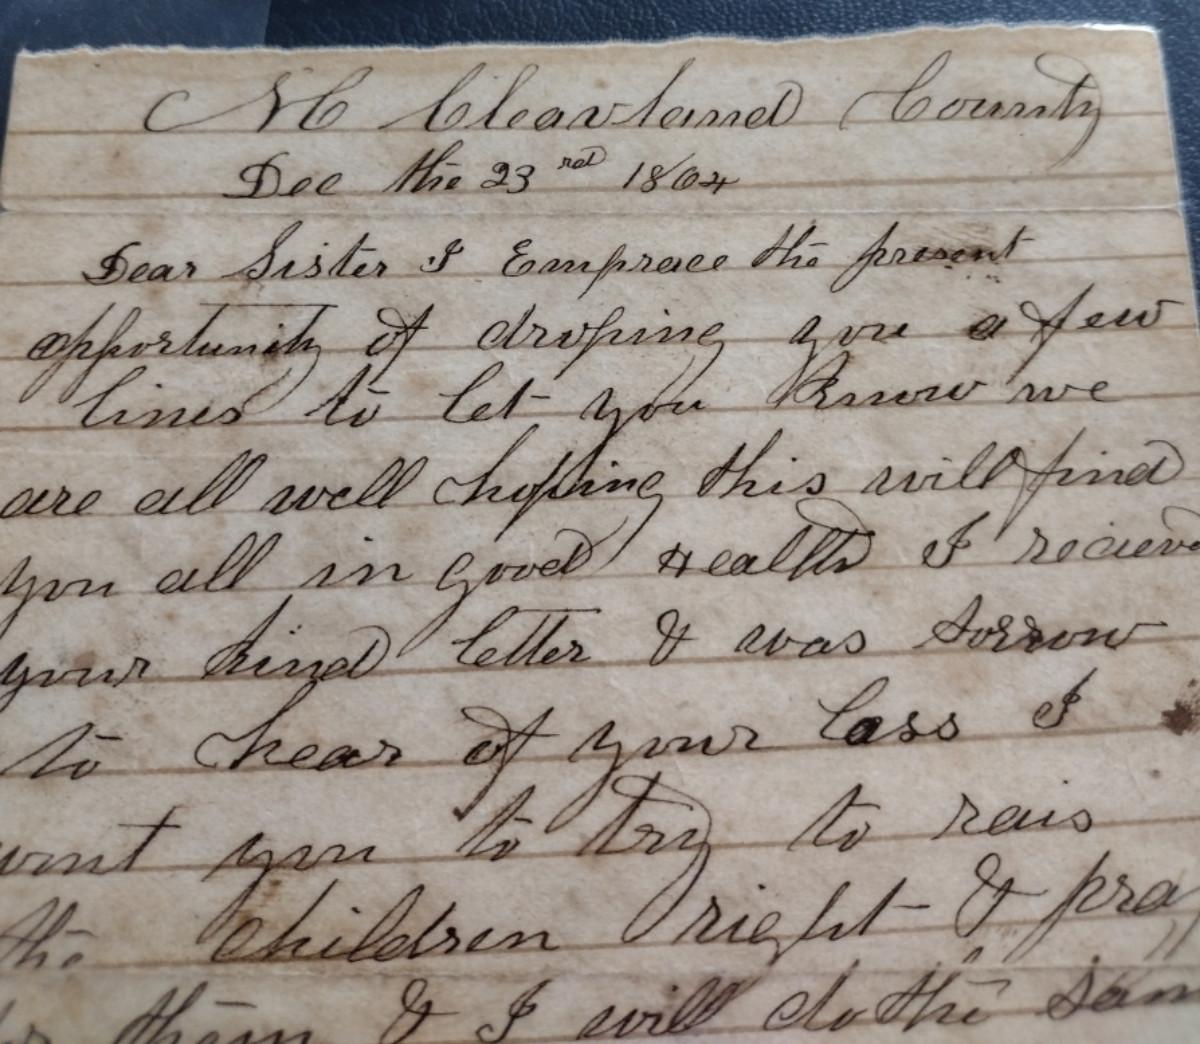 NC Cleavland County
Dec the 23rd 1864
Dear Sister I Embrace the present
opportunity of droping you a few
lines to let you Know we
are all well hoping this will find
you all in good Health I recieved
your kind letter & was sorrow
to hear of your loss I
want you to try to rais
the children right & pray
for them & I will do the same